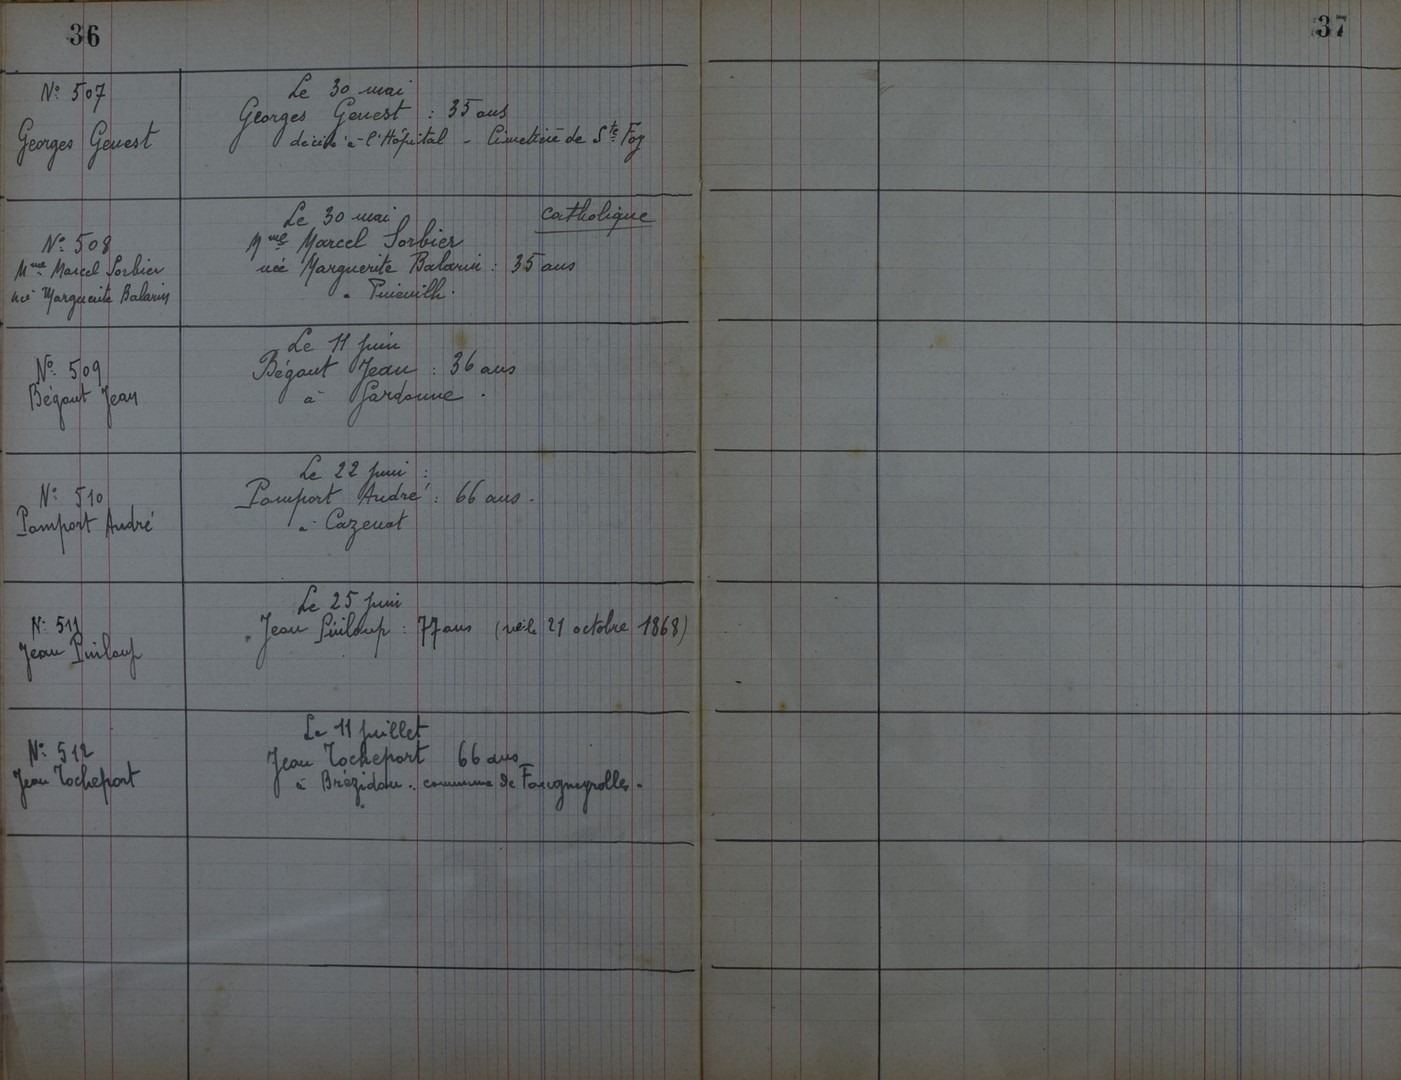 36
37
Nº 507
Georges Genest
Le 30 mai
Georges Genest : 35 ans
décédé à l'Hôpital - Cimetière de Ste Foy
Nº 508
Mme Marcel Sorbier
née Marguerite Balarin
Le 30 mai
catholique
Mme Marcel Sorbier
née Marguerite Balarin : 35 ans
à
Nº 509
Bégout Jean
Le 11 juin
Bégout Jean : 36 ans
à Gardonne.
Nº 510
Pomport André
Le 22 juin :
Pomport André : 66 ans.
à Cazenat
Nº 511
Jean Puiloup
Le 25 juin
Jean Puiloup : 77 ans (né le 21 octobre 1868)
Nº 512
Jean Rocheport
Le 11 juillet
Jean Rocheport 66 ans
à commune de Fougueyrolles.